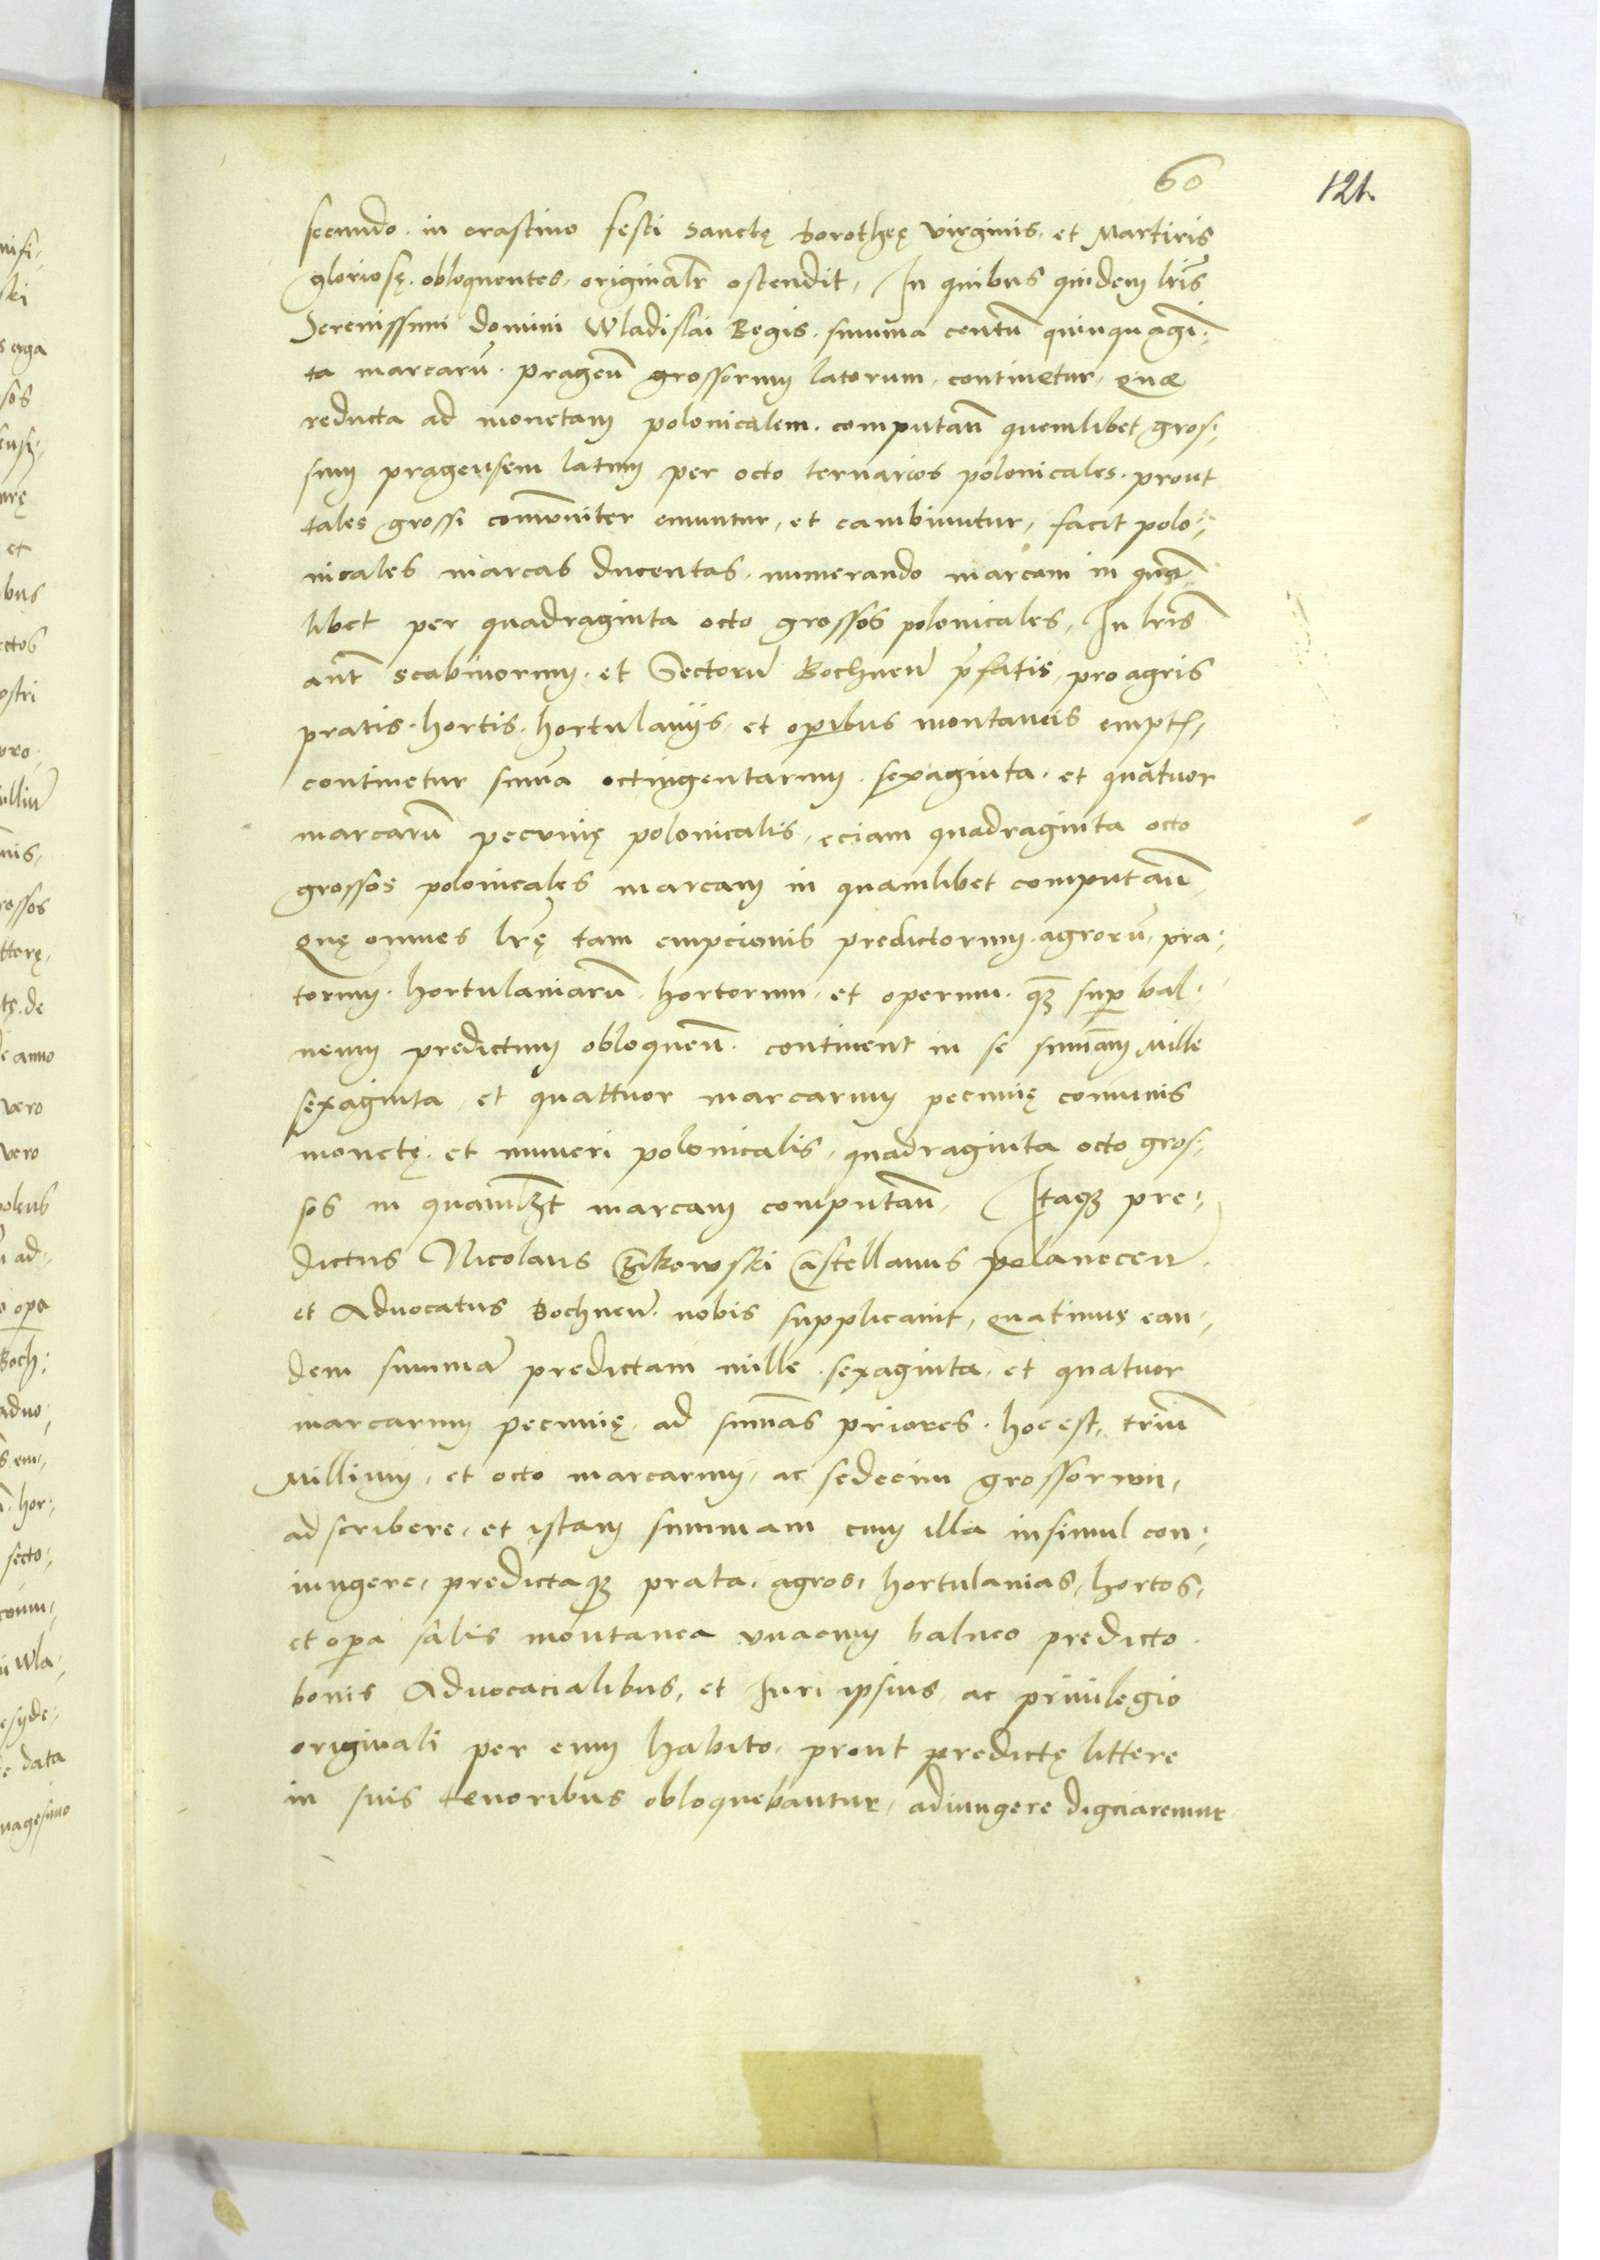 60
121.
secundo. in crastino festi Sanctę Dorotheę virginis. et Martiris
gloriosę. obloquentes. originalr̃ ostendit, In quibus quidem lr̃is
Serenissimi domini Wladislai Regis. summa centũ quinquagi-
ta marcarũ. pragen̄ grossorum latorum. continetur. quae
reducta ad monetam polonicalem. computan̄ quemlibet gros-
sum pragensem latum per octo ternarios polonicales. prout
tales grossi com̄uniter emuntur, et cambiuntur, facit polo-
nicales marcas ducentas. numerando marcam in quam-
libet per quadraginta octo grossos polonicales, In lr̃is
aut̃ scabinorum. et Sectorũ Bochnen̄ p̄fatis, pro agris
pratis. hortis. hortulanijs. et operibus montaneis empt.
continetur sum̄a octingentarum. sexaginta. et quatuor
marcarũ pecunię polonicalis, eciam quadraginta octo
grossos polonicales marcam in quamlibet computan̄
Quę omnes lr̃ę tam empcionis predictorum. agrorũ, pra-
torum. hortulaniarũ. hortorum. et operum. q̃ʒ sup bal-
neum predictum obloquen̄. continent in se sum̄am Mille
sexaginta, et quattuor marcarum pecunię com̄unis
monetę. et numeri polonicalis, quadraginta octo gros-
sos in quamlʒt marcam computan̄, Itaqʒ pre-
dictus Nicolaus Castellanus polanecen̄.
et Advocatus Bochnen̄. nobis supplicauit, quatinus ean-
dem summã predictam mille. sexaginta. et quatuor
marcarum pecunię. ad sum̄as priores. hoc est, triũ
Millium, et octo marcarum, ac sedecim grossorum,
adscribere, et istam summam cum illa insimul con-
iungere, predictaqʒ prata. agros, hortulanias, hortos,
et opa salis montanea vnacum balneo predicto.
bonis Advocacialibus, et Iuri ipsius, ac priuilegio
originali per eum habito. prout predictę littere
in suis tenoribus obloquebantur, adiungere digniaremur